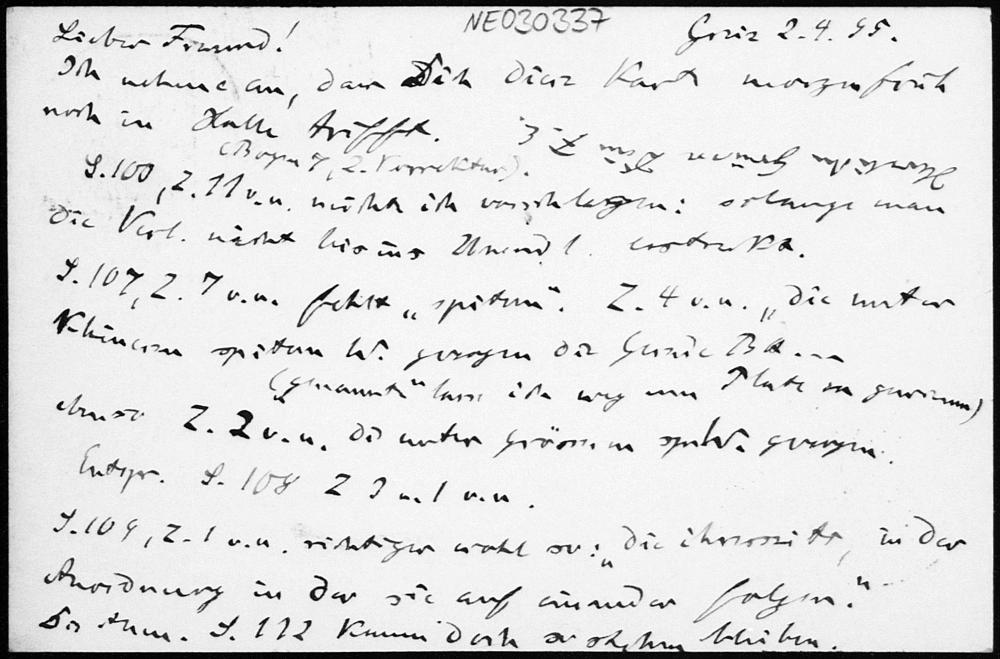 NE030337
Graz 2.4.95.
Lieber Freund!
Ich nehme an, dass Dich diese Karte morgen früh
noch in Halle trifft.
(Bogen 7, 2. Korrektur).
S. 100, Z. 11 v. u. möchte ich vorschlagen: solange man
die Verl. nicht bis ins Unendl. erstreckt.
S. 107, Z. 7 v. u. fehlt „spitzen". Z. 4 v. u. „die unter
kleinerem spitzen W. gezogen die Gerade BA ...
(„genannte" lasse ich weg um Platz zu gewinnen)
ebenso Z. 2 v. u. die unter grösserem spitz W. gezogen.
Entspr. S. 108 Z 3 u. 1 v. u.
S. 109, Z. 1 v. u. richtiger wohl so: „die ihrerseits, in der
Anordnung in der sie auf einander folgen."
Die Anm. S. 112 kann doch so stehen bleiben.